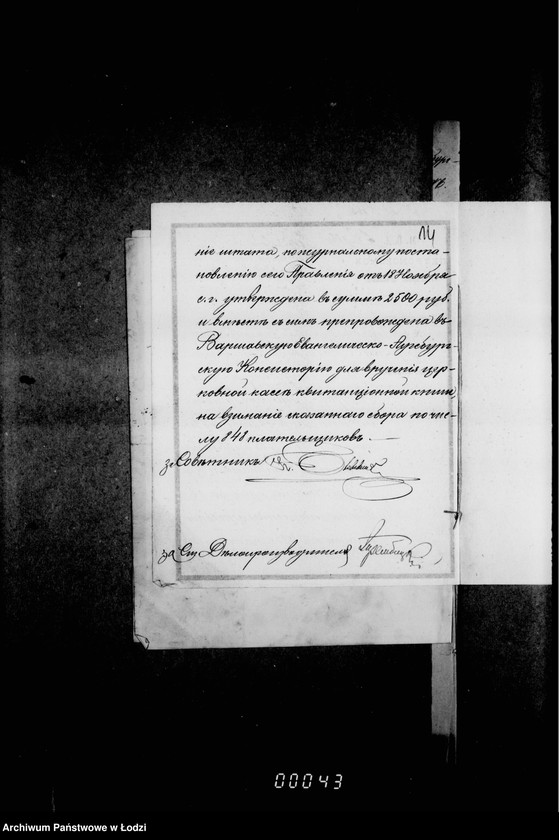 14
ніе штата, по журнальному поста-
новленію сего Правленія отъ 18 Ноября
с.г. утверждена въ суммѣ 2500 руб.
и вмѣстѣ съ симъ препровождена въ
Варшавскую Евангелическо-Аугсбург-
скую Консисторію для врученія цер-
ковной кассѣ квитанціонной книги
на взиманіе сказаннаго сбора по чис-
лу 848 плательщиковъ. —
за Совѣтника
за Ст. Дѣлопроизводителя
00043
Archiwum Państwowe w Łodzi